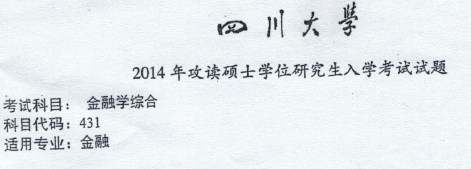 四川大学
2014 年攻读硕士学位研究生入学考试试题
考试科目： 金融学综合
科目代码：431
适用专业：金融